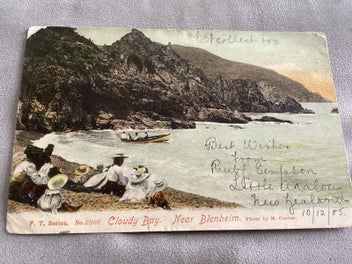 I collect too
Best Wishes
from
Ruby Simpson
Little Akaloa
New Zealand
10/12/05
F. T. Series. No. 2966. Cloudy Bay. Near Blenheim. Photo by M.